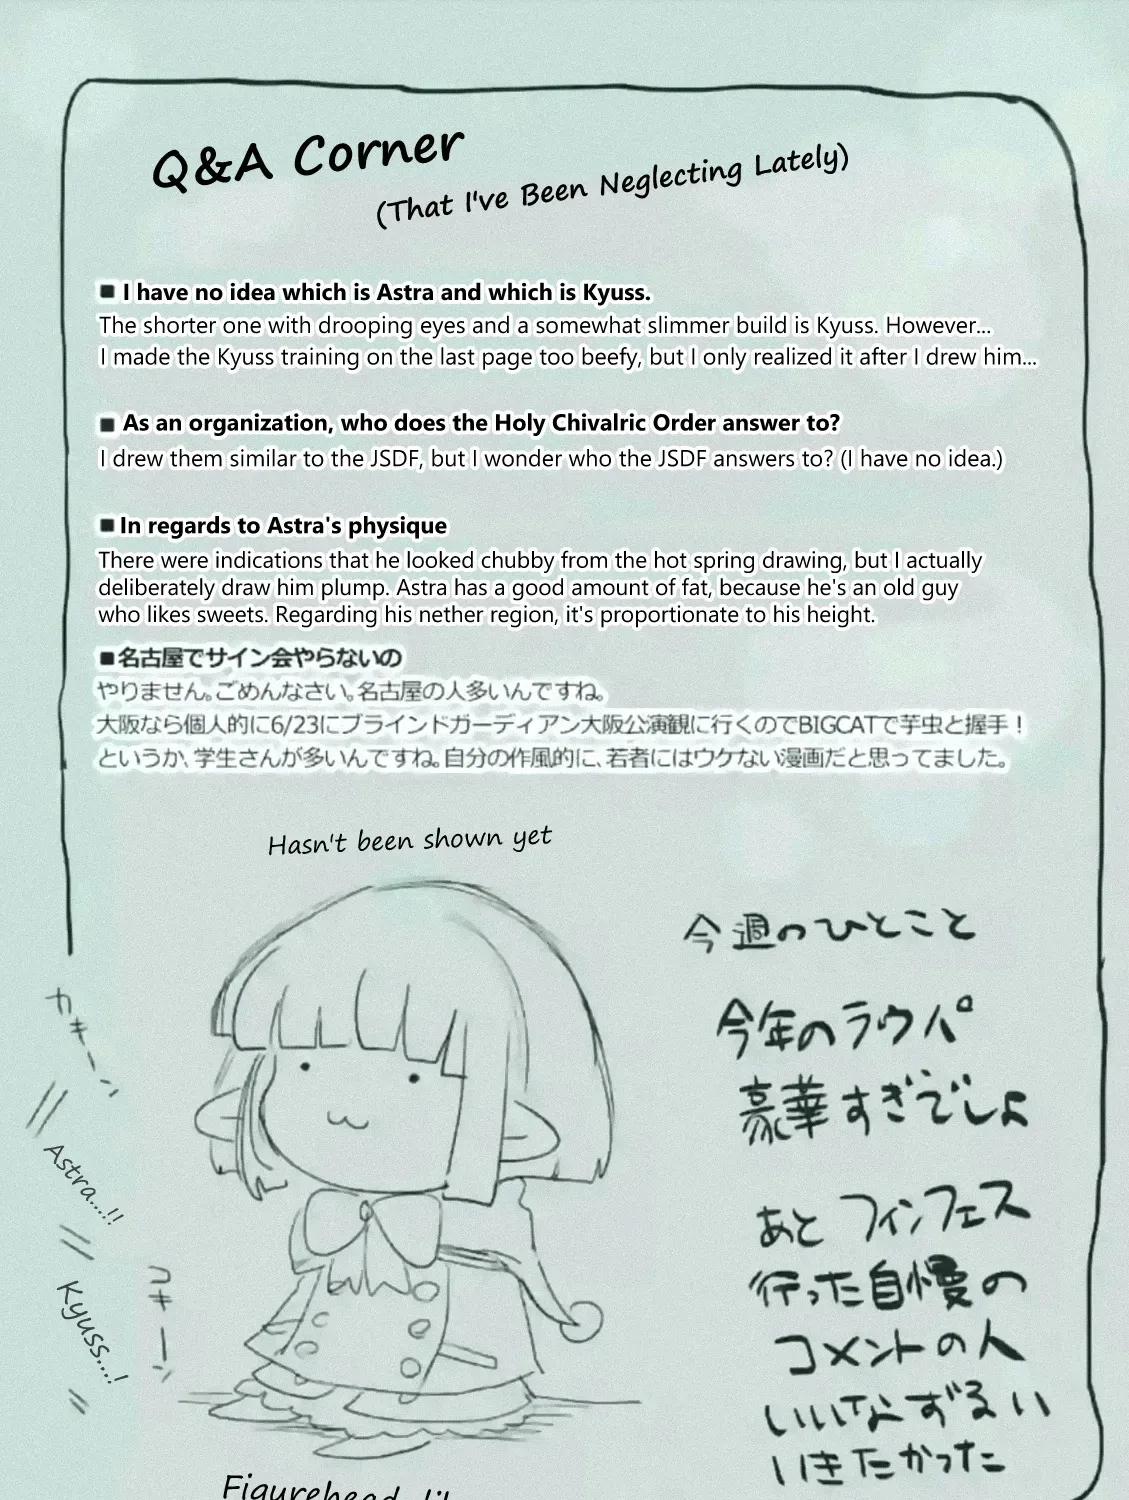 Q&A Corner
(That I've Been Neglecting Lately)
■ I have no idea which is Astra and which is Kyuss.
The shorter one with drooping eyes and a somewhat slimmer build is Kyuss. However...
I made the Kyuss training on the last page too beefy, but I only realized it after I drew him...
■ As an organization, who does the Holy Chivalric Order answer to?
I drew them similar to the JSDF, but I wonder who the JSDF answers to? (I have no idea.)
■ In regards to Astra's physique
There were indications that he looked chubby from the hot spring drawing, but I actually
deliberately draw him plump. Astra has a good amount of fat, because he's an old guy
who likes sweets. Regarding his nether region, it's proportionate to his height.
■名古屋でサイン会やらないの
やりません。ごめんなさい。名古屋の人多いんですね。
大阪なら個人的に6/23にブラインドガーディアン大阪公演観に行くのでBIGCATで芋虫と握手！
というか、学生さんが多いんですね。自分の作風的に、若者にはウケない漫画だと思ってました。
Hasn't been shown yet
今週のひとこと
今年のラウパ
豪華すぎでしょ
あと フィンフェス
行った自慢の
コメントの人
いいなずるい
いきたかった
カキーン
Astra...!!
コキーン
Kyuss...!
Figurehead